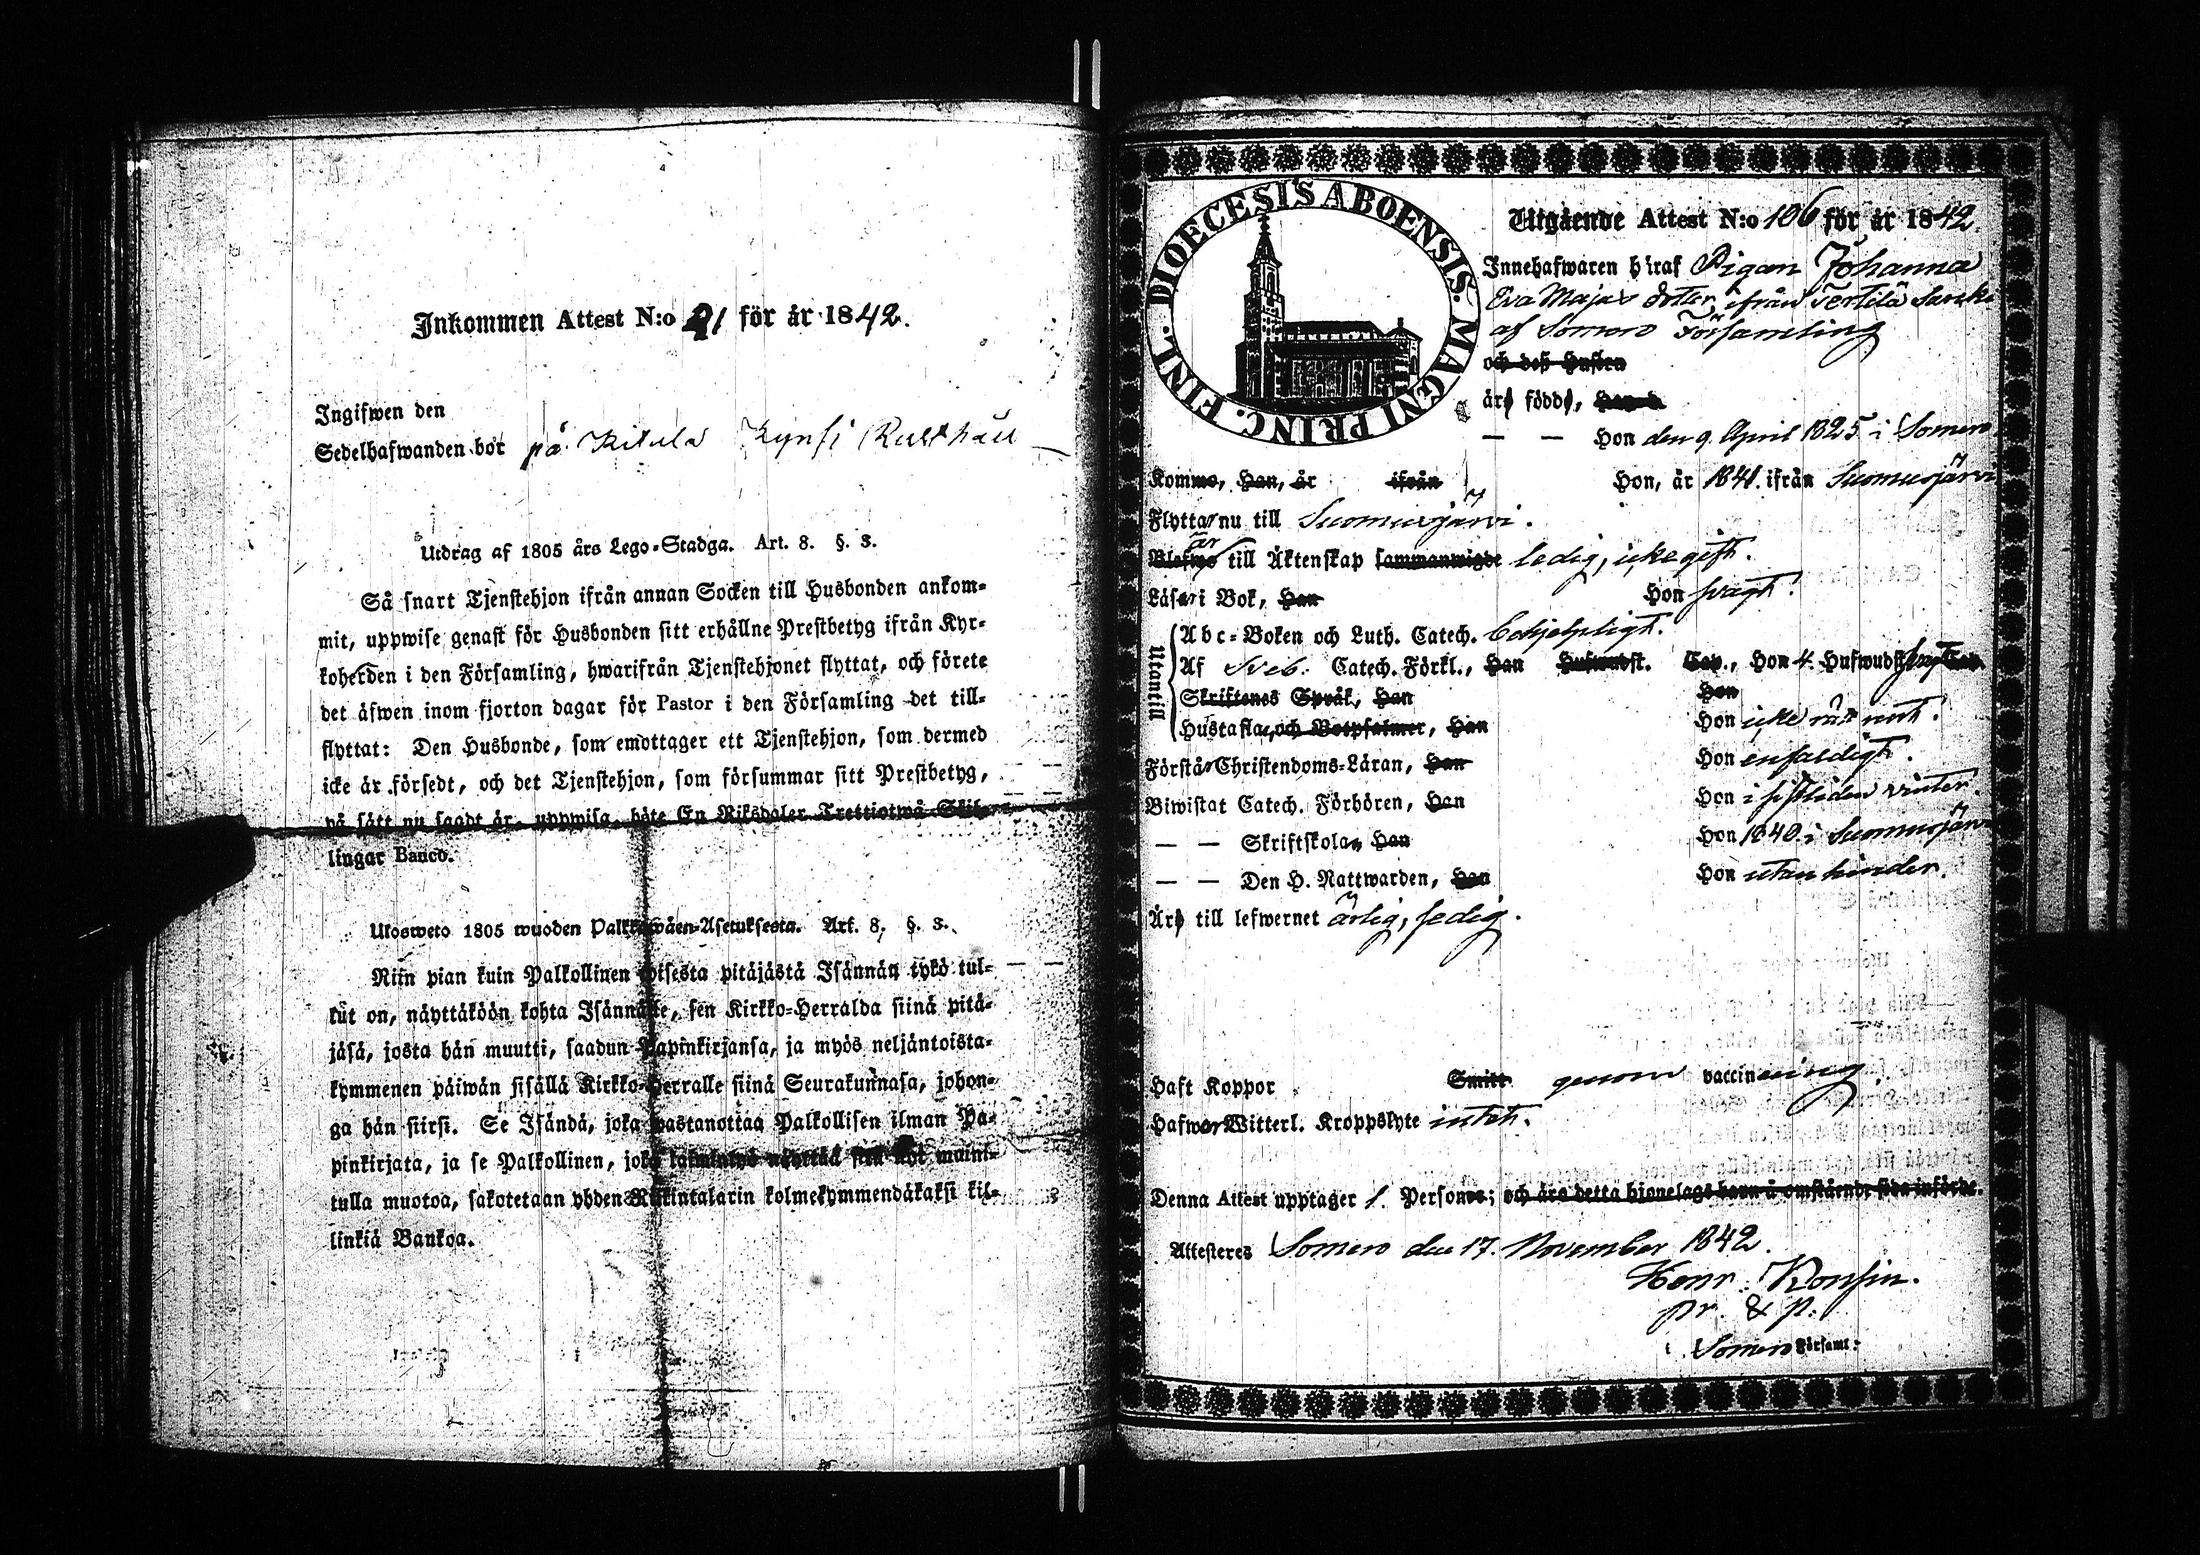 Inkommen Attest N:o 21 för år 1842.
Ingifwen den
Sedelhafwanden bor på Kitula Kynsi Rusthåll
Utdrag af 1805 års Lego-Stadga. Art. 8. §. 3.
Så snart Tjenstehjon ifrån annan Socken till Husbonden ankom-
mit, uppwise genast för Husbonden sitt erhållne Prestbetyg ifrån Kyr-
koherden i den Församling, hwarifrån Tjenstehjonet flyttat, och förete
det äfwen inom fjorton dagar för Pastor i den Församling det till-
flyttat: Den Husbonde, som emottager ett Tjenstehjon, som dermed
icke är försedt, och det Tjenstehjon, som försummar sitt Prestbetyg,
på sätt nu sagdt är, uppwisa, böte En Riksdaler Trettiotwå Skil-
lingar Banco.
Ulosweto 1805 wuoden Palkkawäen-Asetuksesta. Art. 8, §. 3.
Niin pian kuin Palkollinen toisesta pitäjästä Isännän tykö tul-
lut on, näyttäköön kohta Isännälle, sen Kirkko-Herralda siinä pitä-
jäsä, josta hän muutti, saadun Papinkirjansa, ja myös neljäntoista-
kymmenen päiwän sisällä Kirkko-Herralle siinä Seurakunnasa, johon-
ga hän siirsi. Se Isändä, joka wastanottaa Palkollisen ilman Pa-
pinkirjata, ja se Palkollinen, joka näyttää sen maini-
tulla muotoa, sakotetaan yhden Riikintalarin kolmekymmendäkaksi kil-
linkiä Bankoa.
DIOECESIS ABOENSIS. MAGNI PRINC. FINL.
Utgående Attest N:o 106 för år 1842.
Innehafwaren häraf Pigan Johanna
Eva Majas dotter ifrån Terttilä
af Somero Församling
och deß Hustru
äro födde, Han d.
— — Hon den 9. April 1825 i Somero
Komme, Han, är ifrån Hon, är 1841. ifrån Suomusjärvi
Flyttar nu till Suomusjärvi.
är
Blefwo till Äktenskap sammanwigde ledig, icke gift.
Läsa i Bok, Han Hon svagt.
Utantill
Abc-Boken och Luth. Catech. behjelpligt.
Af Sveb. Catech. Förkl., Han Hufwudst. Cap., Hon 4. Hufwudst. Cap.
Skriftenes Språk, Han Hon
Hustafla, och Botpsalmer, Han Hon icke
Förstå Christendoms-Läran, Han Hon enfaldigt.
Biwistat Catech. Förhören, Han Hon i sistliden vinter.
— — Skriftskola, Han Hon 1840. i Suomusjärvi
— — Den H. Nattwarden, Han Hon utan hinder.
Äro till lefwernet ärlig, sedig.
Haft Koppor Smitt genom vaccinering.
Hafwer Witterl. Kroppslyte intet.
Denna Attest upptager 1. Person; och äro detta hjonelags barn å omstående sida införde.
Attesteres Somero den 17. November 1842.
Henr. Konsin.
pr. & p.
i Somero Församl: